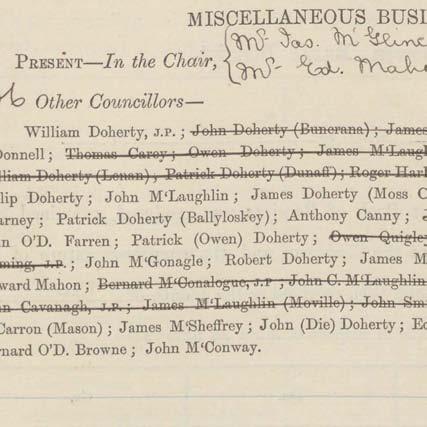 MISCELLANEOUS BUSI
Mr Jas. McGlinc
PRESENT—In the Chair,
Mr Ed. Maho
Other Councillors—
William Doherty, J.P.; John Doherty (Buncrana); James
Donnell; Thomas Carey; Owen Doherty; James M'Laugh
lliam Doherty (Lenan), Patrick Doherty (Dunaff); Roger Hark
ilip Doherty; John M'Laughlin; James Doherty (Moss C
arney; Patrick Doherty (Ballyloskey); Anthony Canny;
n O'D. Farren; Patrick (Owen) Doherty; Owen Quigley
ming, J.P.; John M'Gonagle; Robert Doherty; James M
ward Mahon; Bernard M'Conalogue, J.P.; John C. M'Laughlin
n Cavanagh, J.P.; James M'Laughlin (Moville); John Sm
Carron (Mason); James M'Sheffrey; John (Die) Doherty; Ed
rnard O'D. Browne; John M'Conway.